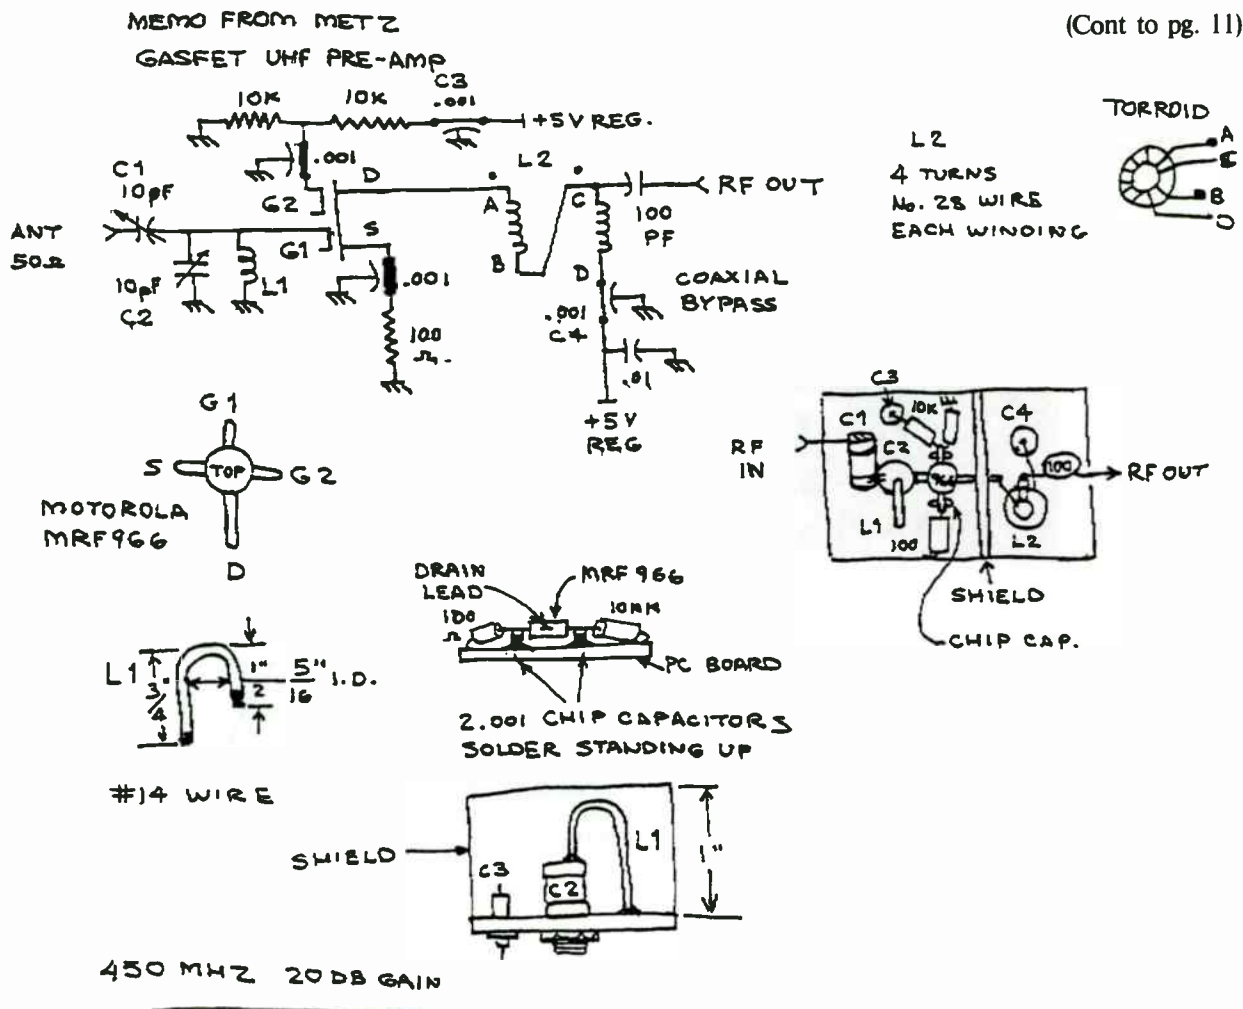 (Cont to pg. 11)
MEMO FROM METZ
GASFET UHF PRE-AMP
10K
10K
C3
.001
+5V REG.
.001
C1
10pF
G2
D
L2
A
C
RF OUT
100
PF
ANT
50Ω
G1
S
10pF
C2
L1
.001
100
Ω.
B
D
COAXIAL
BYPASS
.001
C4
.01
+5V
REG
L2
4 TURNS
No. 28 WIRE
EACH WINDING
TORROID
A
C
B
D
G1
S
TOP
G2
D
MOTOROLA
MRF966
C3
C1
10K
C2
C4
RF
IN
100
RF OUT
L1
100
L2
SHIELD
CHIP CAP.
DRAIN
LEAD
MRF966
100
Ω
PC BOARD
2.001 CHIP CAPACITORS
SOLDER STANDING UP
L1
3/4"
1"
2
5"
16
I.D.
#14 WIRE
SHIELD
C3
C2
L1
1"
450 MHZ 20DB GAIN